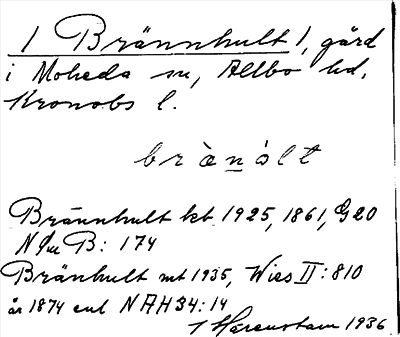 1 Brännhult 1, gård
i Moheda sn, Allbo hd,
Kronobs l.
brànált
Brännhult kbt 1925, 1861, G20
N B: 174
Bränhult mt 1935, Wies II: 810
år 1874 enl NAH34: 14
1936